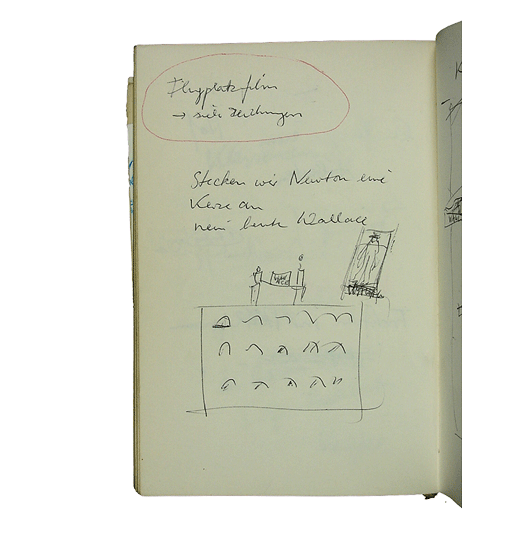 Flugplatzfilm
→ siehe Zeichnungen
Stecken wir Newton eine
Kerze an
nein heute Wallace